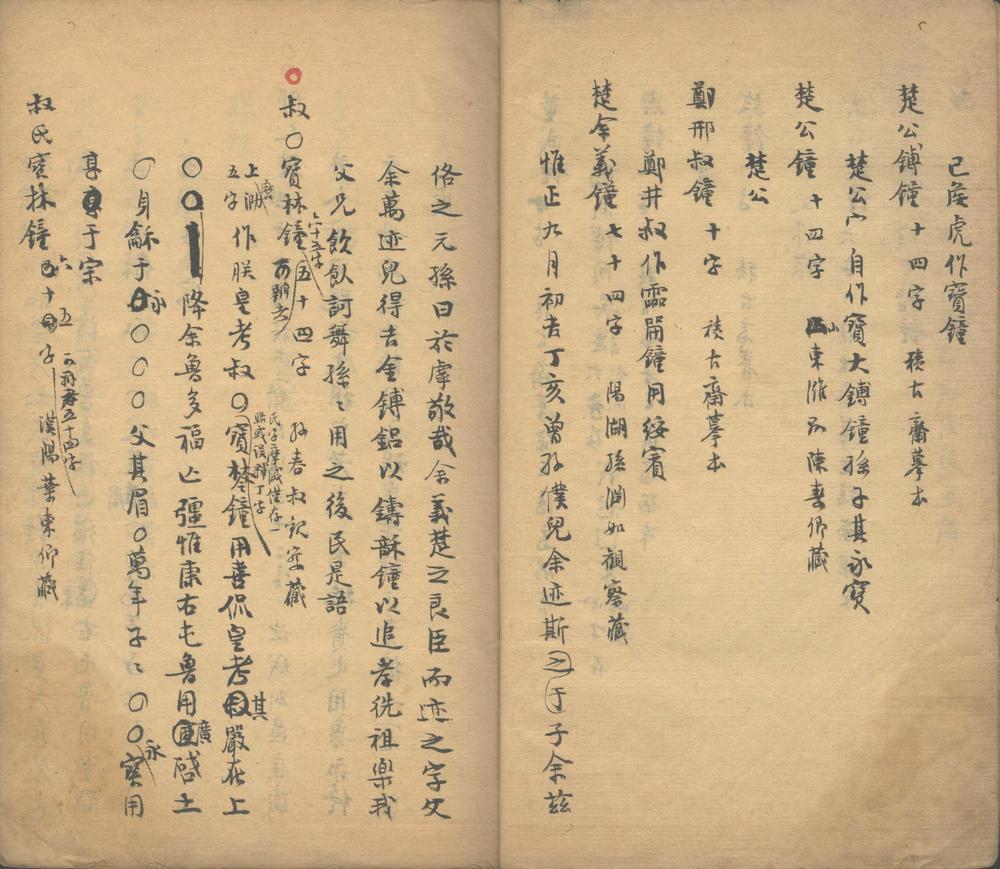 己侯虎作寶鐘
楚公鎛鐘十四字 積古齋摹本
楚公 自作寶大鎛鐘孫子其永寶
楚公鐘十四字 山東濰 陳壽卿藏
楚公
鄭邢叔鐘十字 積古齋摹本
鄭井叔作霝龠鐘用綏賓
楚余義鐘七十四字 陽湖孫淵如觀察藏
惟正九月初吉丁亥曾孫僕兒余迹斯之 子余茲
佫之元孫曰於虖敬哉余義楚之良臣而迹之字父
余萬迹兒得吉金鎛鋁以鑄龢鐘以追孝侁祖樂我
父兄飲飤訶舞孫〻用之後民是語
叔〇寶林鐘五十四字 孫春叔 藏
六十五字
上 五字作朕皇考叔〇寶 鐘用喜侃皇考其嚴在上
氏字 僅存一
〇〇降余魯多福亡彊惟康右屯魯用廣啓土
〇身龢于永〇〇〇〇父其眉〇萬年子〻〇〇永寶用
享于宗
叔氏寶林鐘六十五字 漢陽葉東卿藏
五十四字